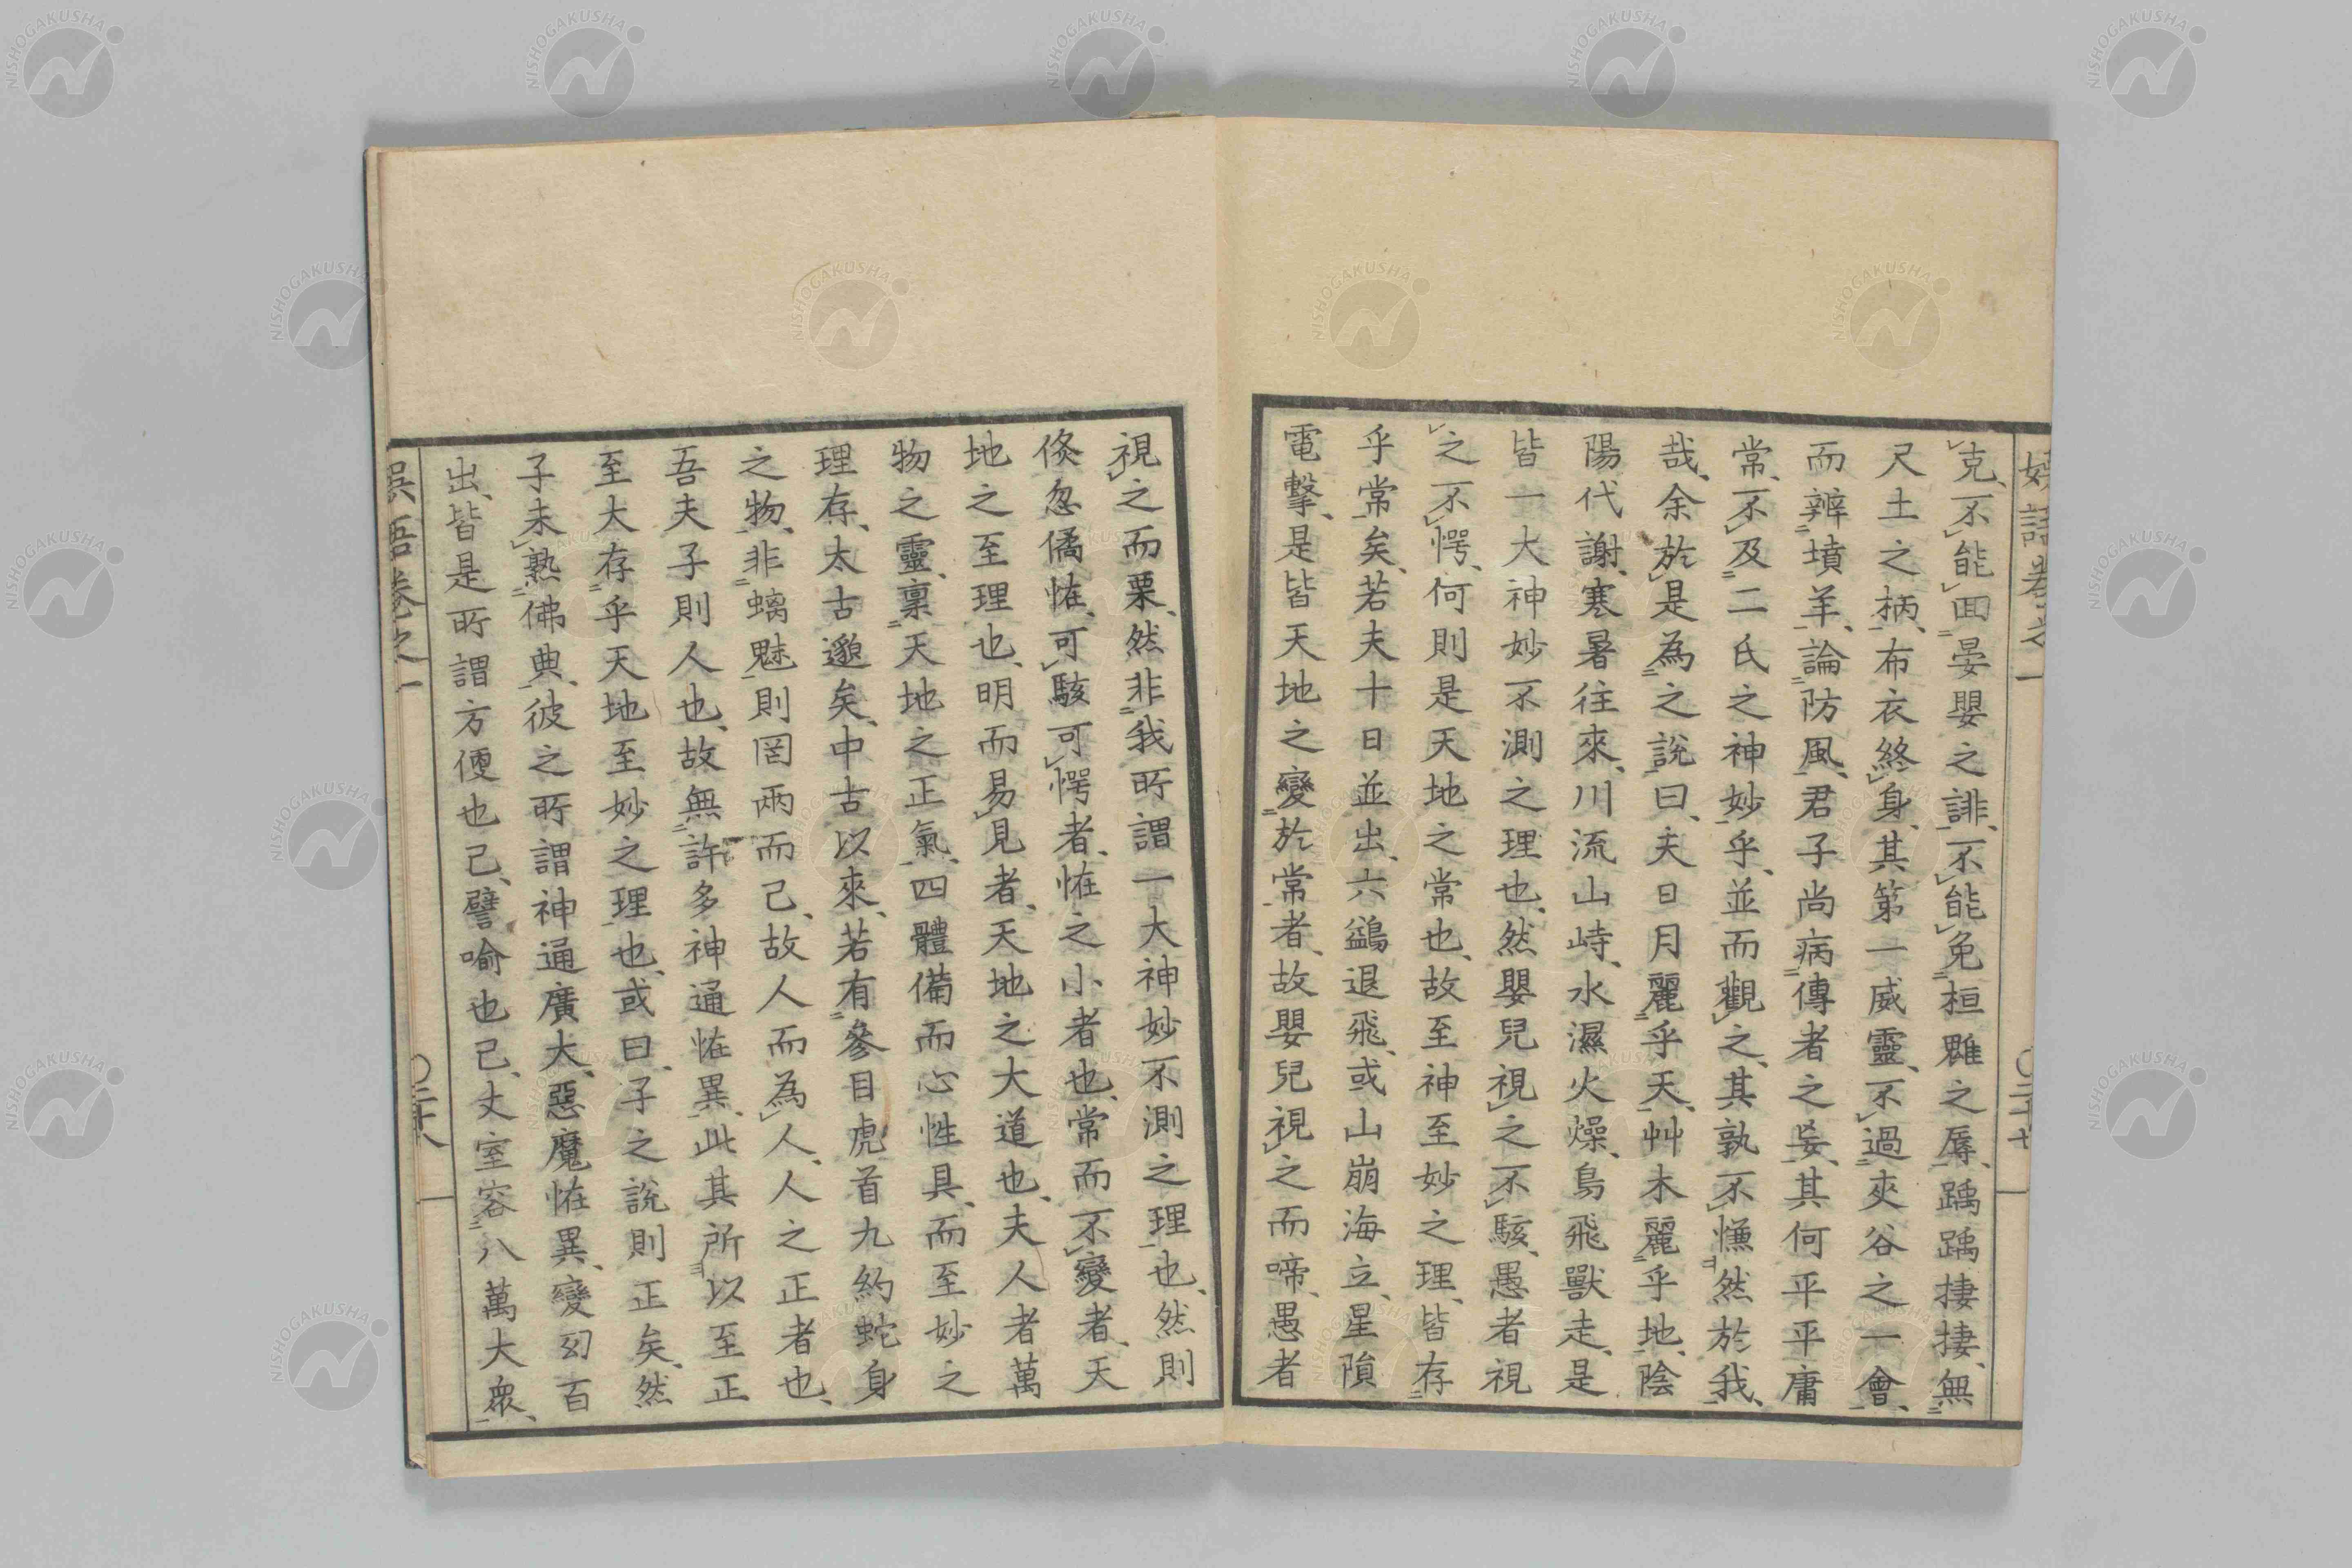 克、不能回晏嬰之誹、不能免桓魋之辱、踽踽捿捿、無
尺土之柄、布衣終身、其第一威靈、不過夾谷之一會、
而辨墳羊、論防風、君子尚病傳者之妄、其何平平庸
常、不及二氏之神妙乎、並而觀之、其孰不憮然於我、
哉、余於是為之說曰、夫日月麗乎天、艸木麗乎地、陰
陽代謝、寒暑往來、川流山峙、水濕火燥、鳥飛獸走、是
皆一大神妙不測之理也、然嬰兒視之不駭、愚者視
之不愕、何則是天地之常也、故至神至妙之理、皆存
乎常矣、若夫十日並出、六鷁退飛、或山崩海立、星隕
電擊、是皆天地之變於常者、故嬰兒視之而啼、愚者
視之而栗、然非我所謂一大神妙不測之理也、然則
倏忽僑恠、可駭可愕者、恠之小者也、常而不變者、天
地之至理也、明而易見者、天地之大道也、夫人者萬
物之靈、禀天地之正氣、四體備而心性具、而至妙之
理存、太古邈矣、中古以來、若有參目虎首九約蛇身
之物、非螭魅則罔兩而已、故人而為人、人之正者也、
吾夫子則人也、故無許多神通恠異、此其所以至正
至大存乎天地至妙之理也、或曰、子之說則正矣、然
子未熟佛典、彼之所謂神通廣大、惡魔恠異、變幻百
出、皆是所謂方便也已、譬喻也已、丈室容八萬大衆、
卷之一
〇二十七
卷之一
〇二十八
NISHOGAKUSHA